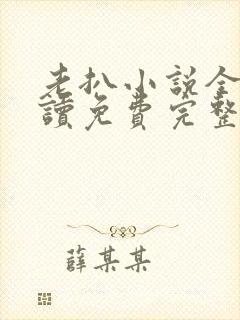 老扒小説全
讀免費完整
薛某某